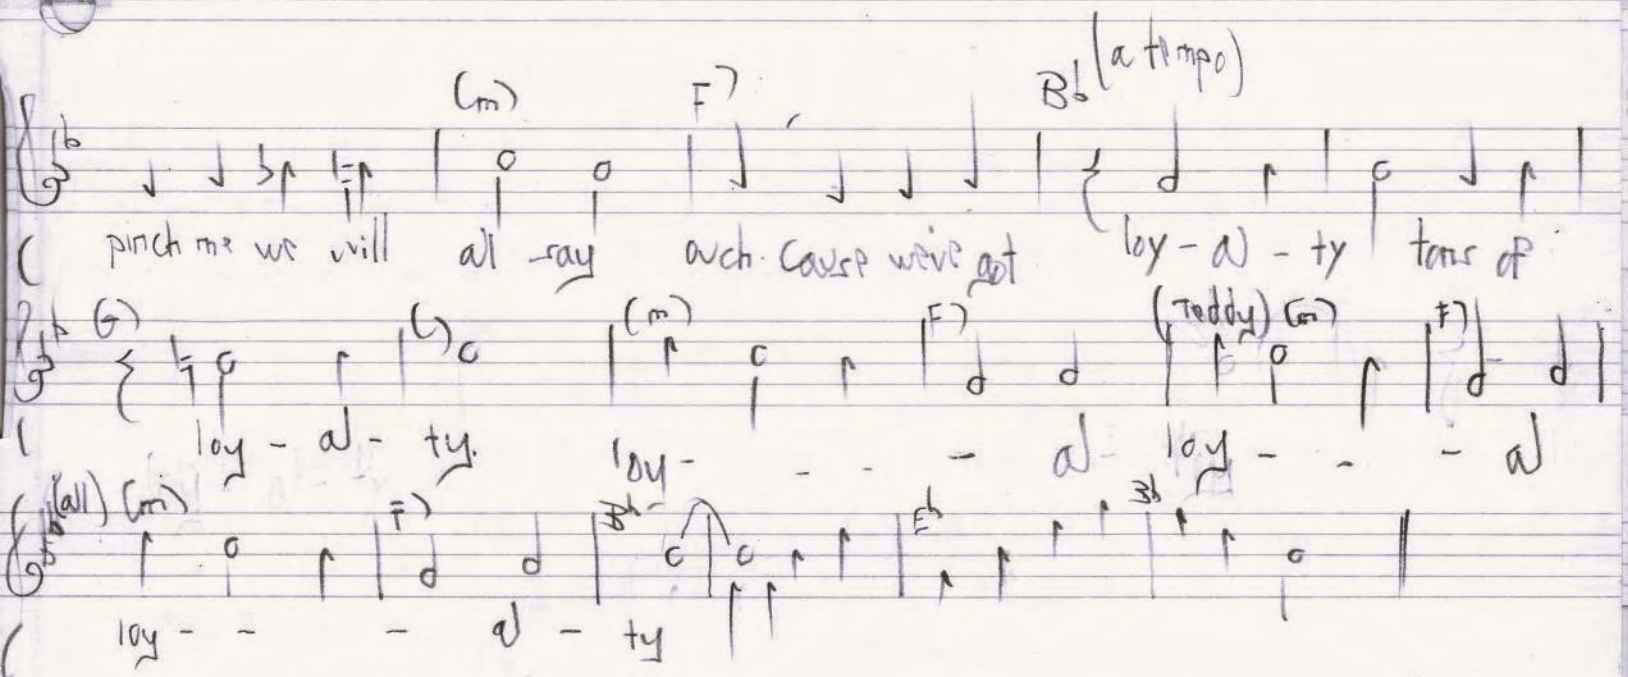 (m) F7 Bb (a tempo)
pinch me we will all say ouch. cause we've got loy - al - ty tons of
(m) F7 (Teddy) (m) F7
loy - al - ty. loy - - - - al loy - - - al
(all) (m) F7 Bb Eb Bb
loy - - - al - ty